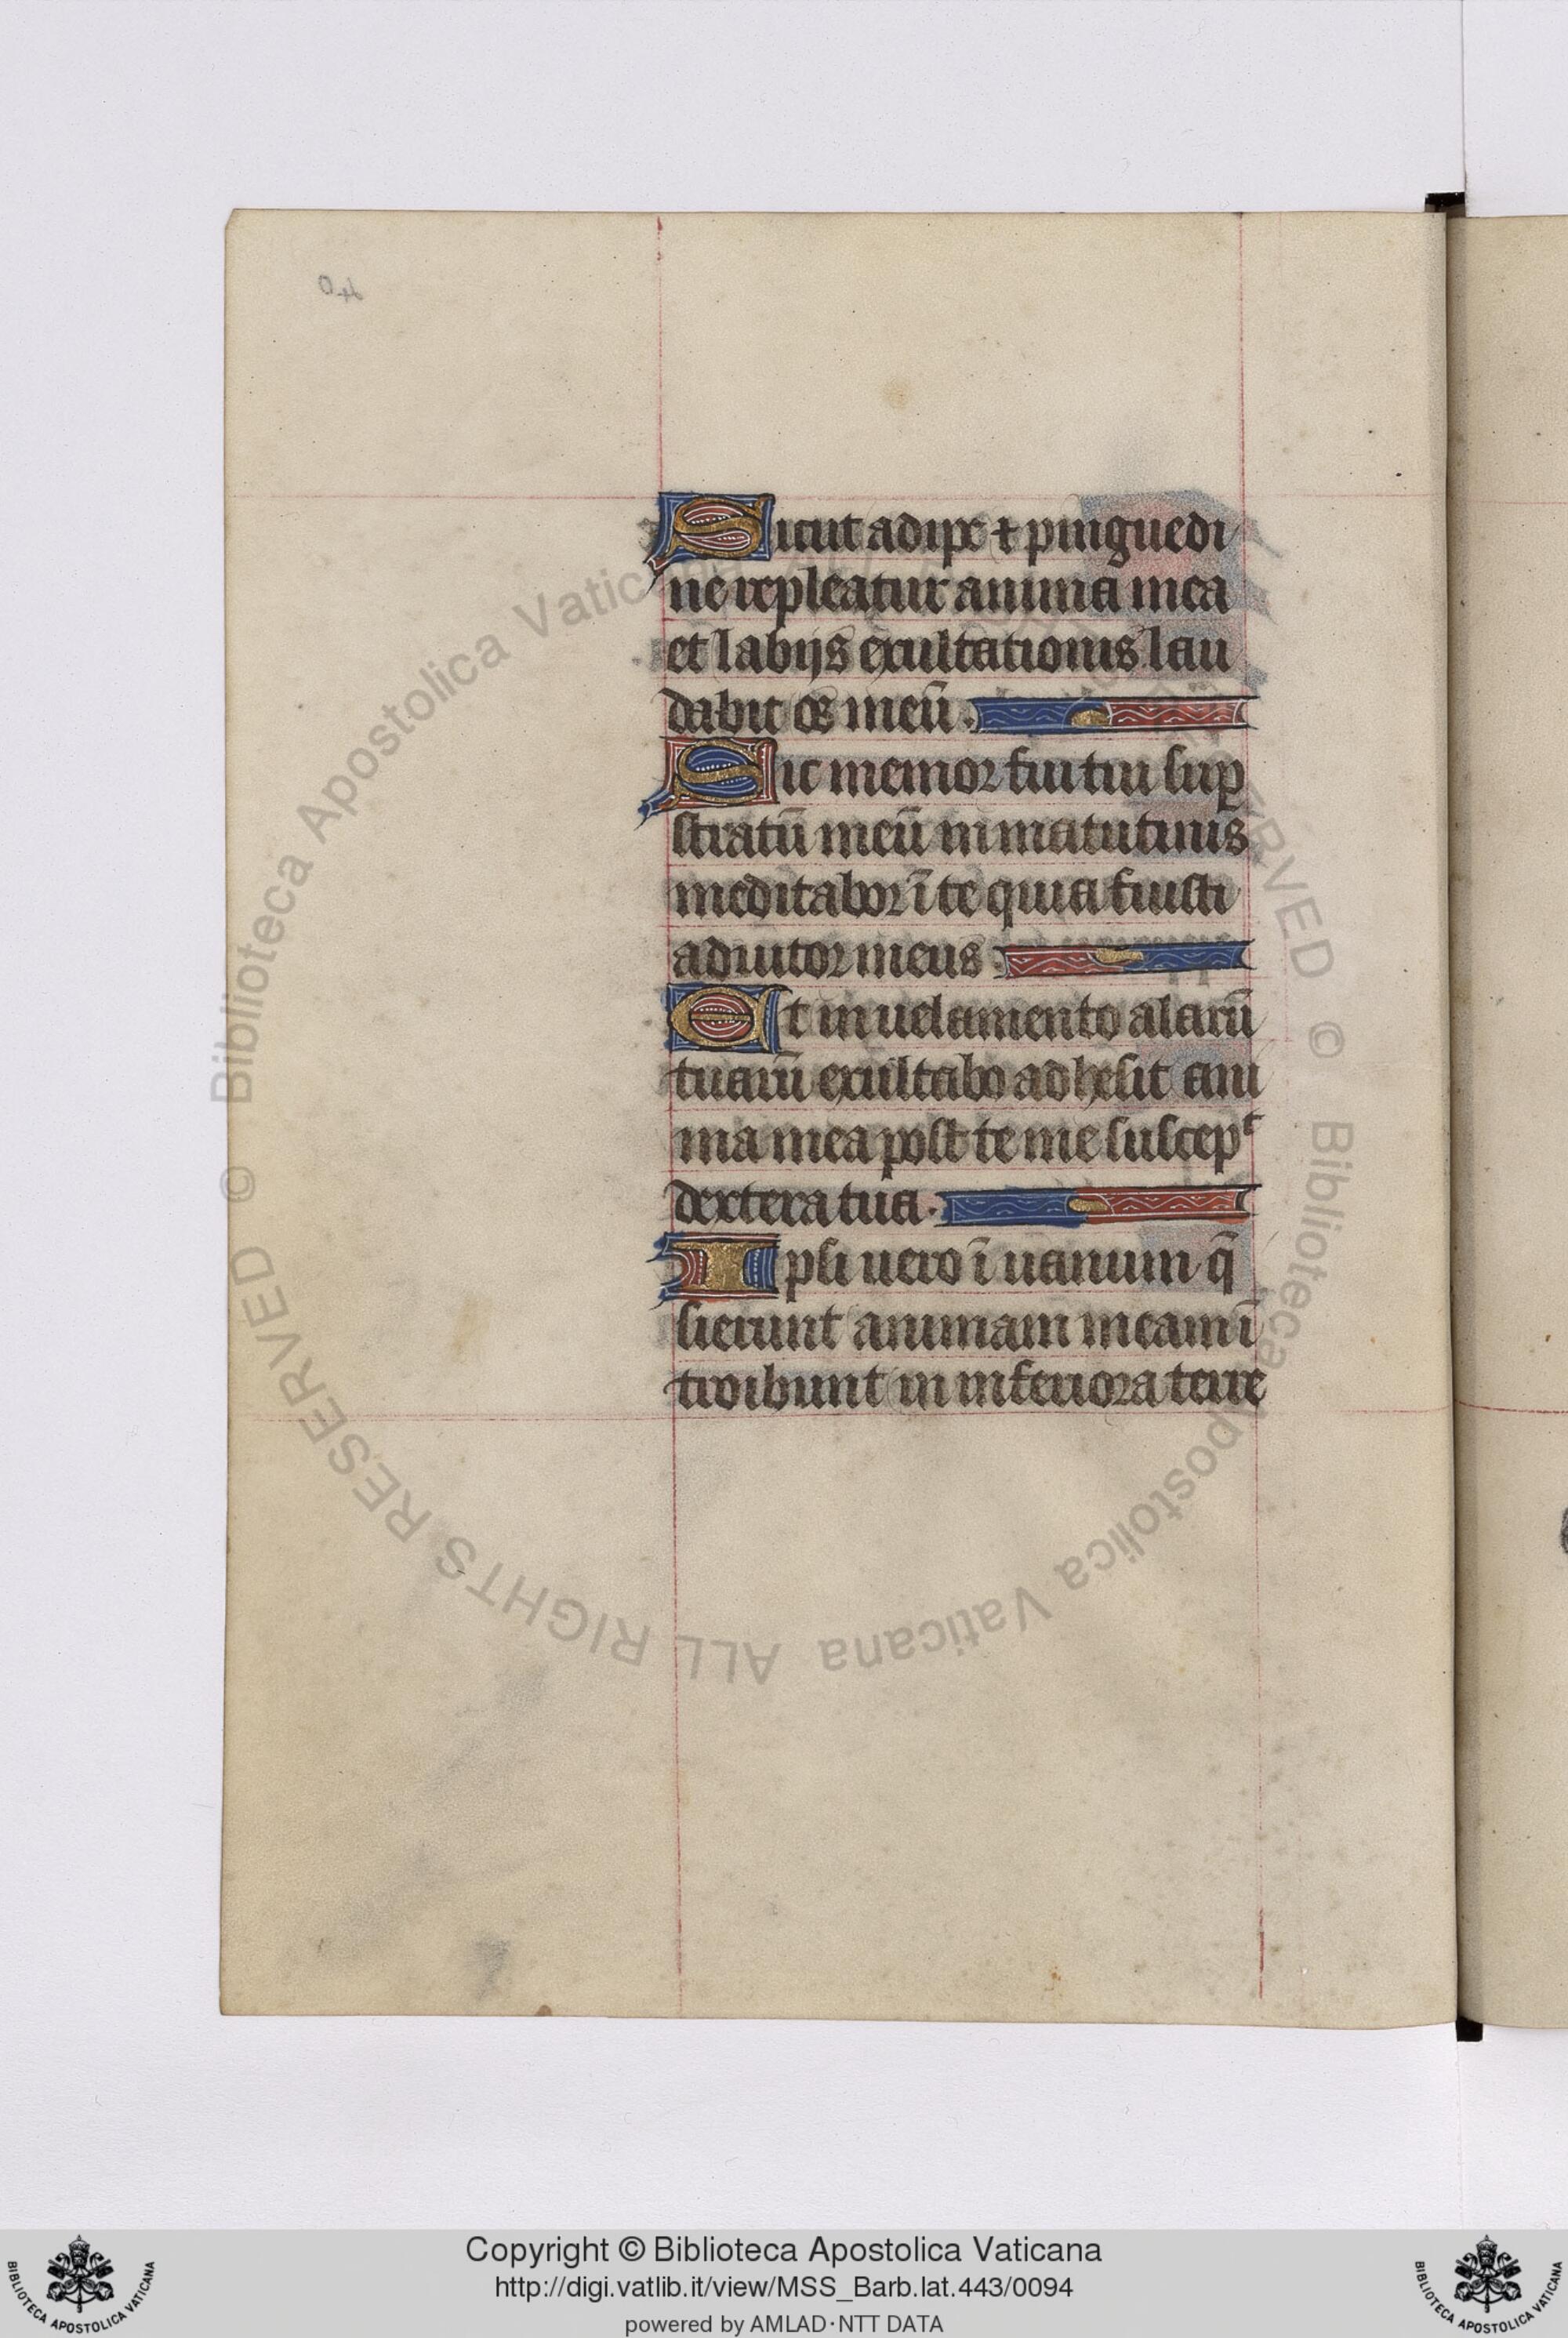 Sicut adipe ⁊ pinguedi
ne repleatur anima mea
et labijs exultationis lau
dabit os meū.
Sic memor fui tui suꝑ
stratū meū in matutinis
meditabor ī te quia fuisti
adiutor meus.
Et in uelamento alarū
tuarū exultabo adhesit ani
ma mea post te me suscepᵗ
dextera tua.
Ipsi uero ī uanum q̄
sierunt animam meam ī
troibunt in inferiora terre
© Biblioteca Apostolica Vaticana ALL RIGHTS RESERVED © Biblioteca Apostolica Vaticana ALL RIGHTS RESERVED
Copyright © Biblioteca Apostolica Vaticana
http://digi.vatlib.it/view/MSS_Barb.lat.443/0094
powered by AMLAD·NTT DATA
BIBLIOTECA APOSTOLICA VATICANA
BIBLIOTECA APOSTOLICA VATICANA